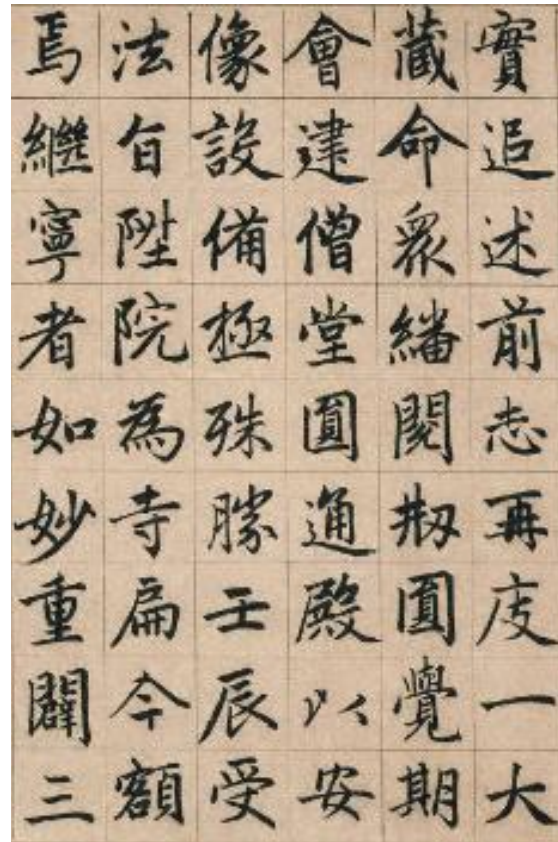 實追述前志再庋一大
藏命衆繙閱剏圓覺期
會建僧堂圓通殿以安
像設備極殊勝壬辰受
法旨陞院為寺扁今額
焉繼寧者如妙重闢三